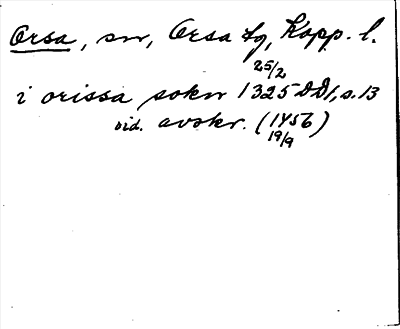 Orsa, sn, Orsa tg, Kopp. l.
25/2
i orissa sokn 1325 DD1, s. 13
vid. avskr. (1456)
19/9